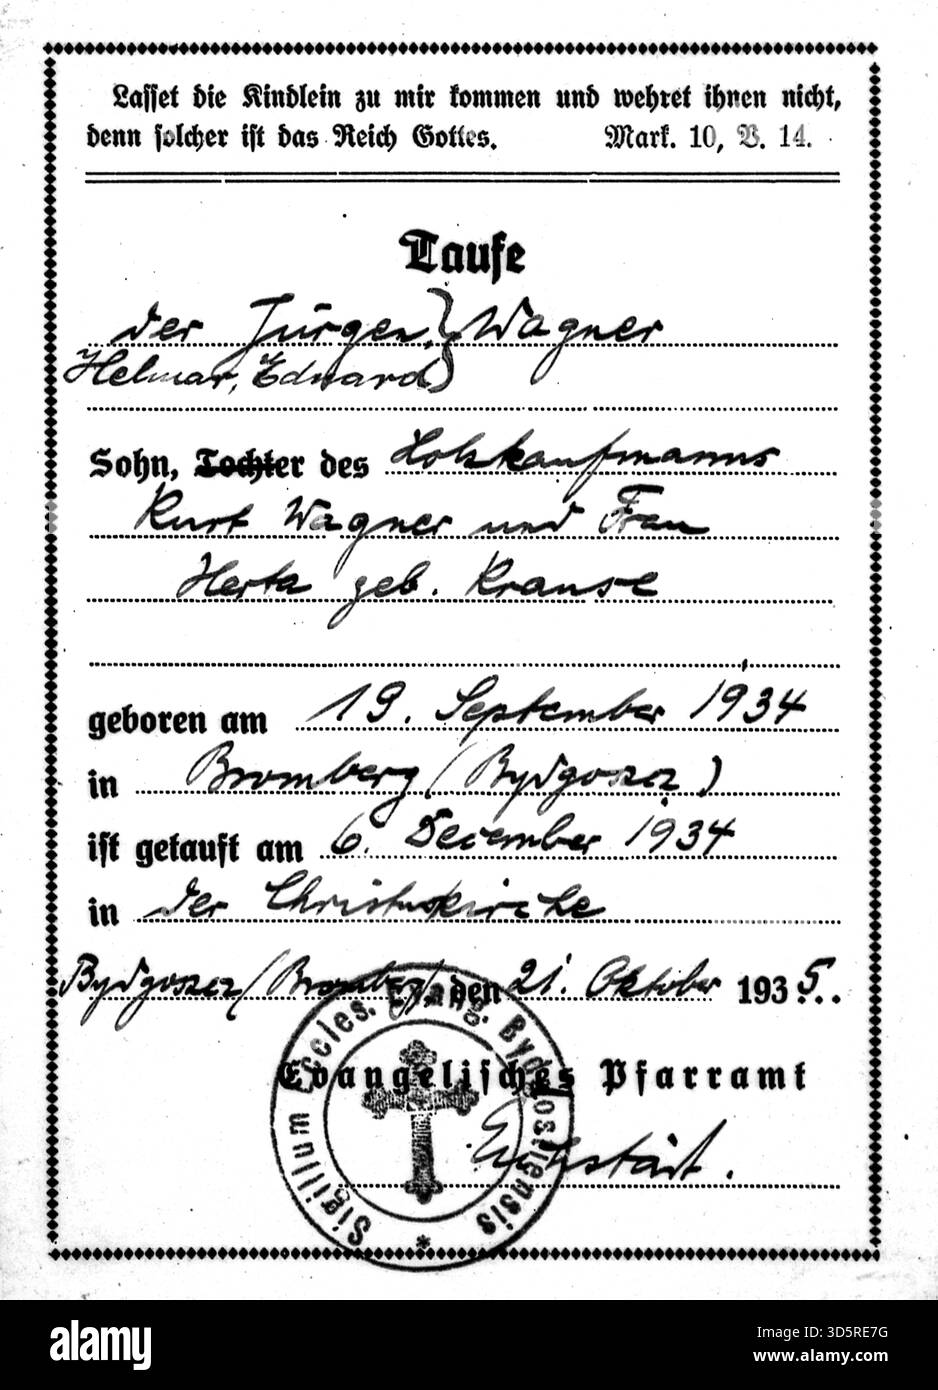 Lasset die Kindlein zu mir kommen und wehret ihnen nicht,
denn solcher ist das Reich Gottes. Mark. 10, V. 14.
Taufe
der Jürgen } Wagner
Helmar, Eduard
Sohn, Tochter des Holzkaufmanns
Kurt Wagner und Frau
Herta geb. Krause
geboren am 19. September 1934
in Bromberg (Bydgoszcz)
ist getauft am 6. Dezember 1934
in der Christuskirche
Bydgoszcz (Bromberg), den 21. Oktober 1935.
Evangelisches Pfarramt
Sigillum Eccles. Evang. Bydgostiensis *
alamy
Image ID: 3D5RE7G
www.alamy.com